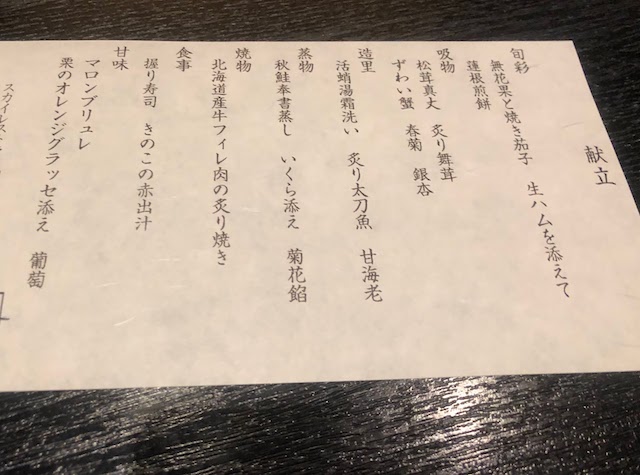 献立
旬彩
無花果と焼き茄子　生ハムを添えて
蓮根煎餅
吸物
松茸真丈　炙り舞茸
ずわい蟹　春菊　銀杏
造里
活蛸湯霜洗い　炙り太刀魚　甘海老
蒸物
秋鮭奉書蒸し　いくら添え　菊花餡
焼物
北海道産牛フィレ肉の炙り焼き
食事
握り寿司　きのこの赤出汁
甘味
マロンブリュレ
栗のオレンジグラッセ添え　葡萄